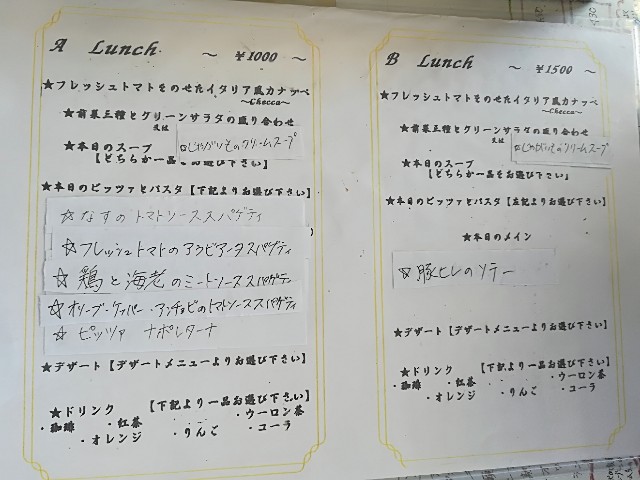 A Lunch ～ ¥1000 ～
★フレッシュトマトをのせたイタリア風カナッペ
～Checca～
★前菜三種とグリーンサラダの盛り合わせ
又は
★本日のスープ
☆じゃがいものクリームスープ
【どちらか一品をお選び下さい】
★本日のピッツァとパスタ【下記よりお選び下さい】
☆なすのトマトソーススパゲティ
☆フレッシュトマトのアラビアータスパゲティ
☆鶏と海老のミートソーススパゲティ
☆オリーブ・ケイパー・アンチョビのトマトソーススパゲティ
☆ピッツァ ナポレターナ
★デザート【デザートメニューよりお選び下さい】
★ドリンク 【下記より一品お選び下さい】
・珈琲 ・紅茶 ・ウーロン茶
・オレンジ ・りんご ・コーラ
B Lunch ～ ¥1500 ～
★フレッシュトマトをのせたイタリア風カナッペ
～Checca～
★前菜三種とグリーンサラダの盛り合わせ
又は
★本日のスープ
☆じゃがいものクリームスープ
【どちらか一品をお選び下さい】
★本日のピッツァとパスタ【左記よりお選び下さい】
★本日のメイン
☆豚ヒレのソテー
★デザート【デザートメニューよりお選び下さい】
★ドリンク 【下記より一品お選び下さい】
・珈琲 ・紅茶 ・ウーロン茶
・オレンジ ・りんご ・コーラ